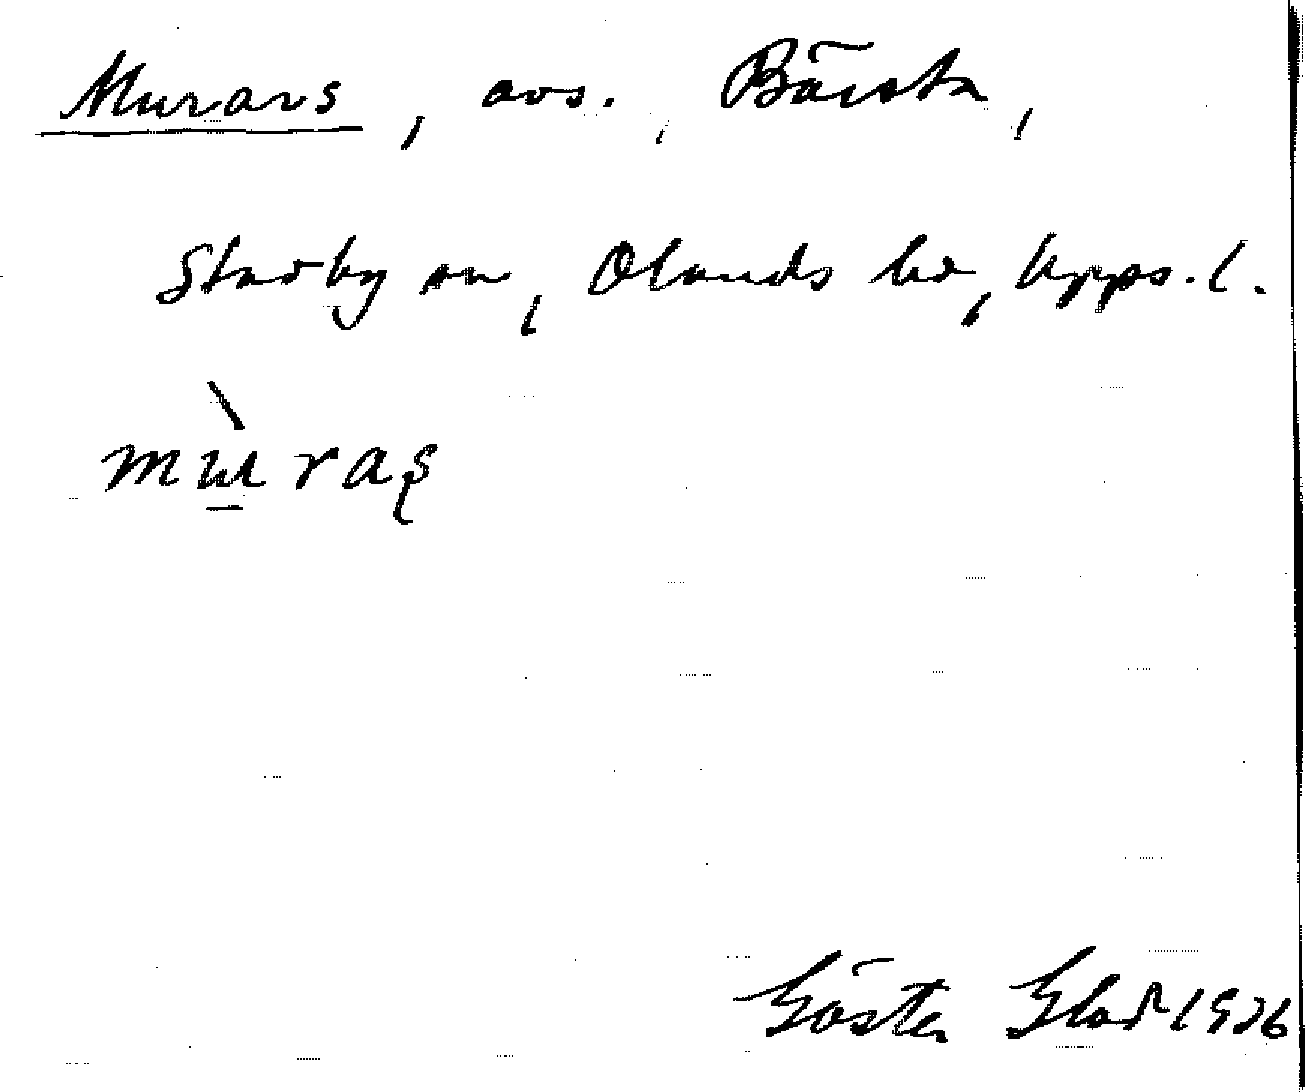 Murars, avs., Bärsta,
Stavby sn, Olands hd, Upps. l.
mùraʂ
Gösta Glad 1926